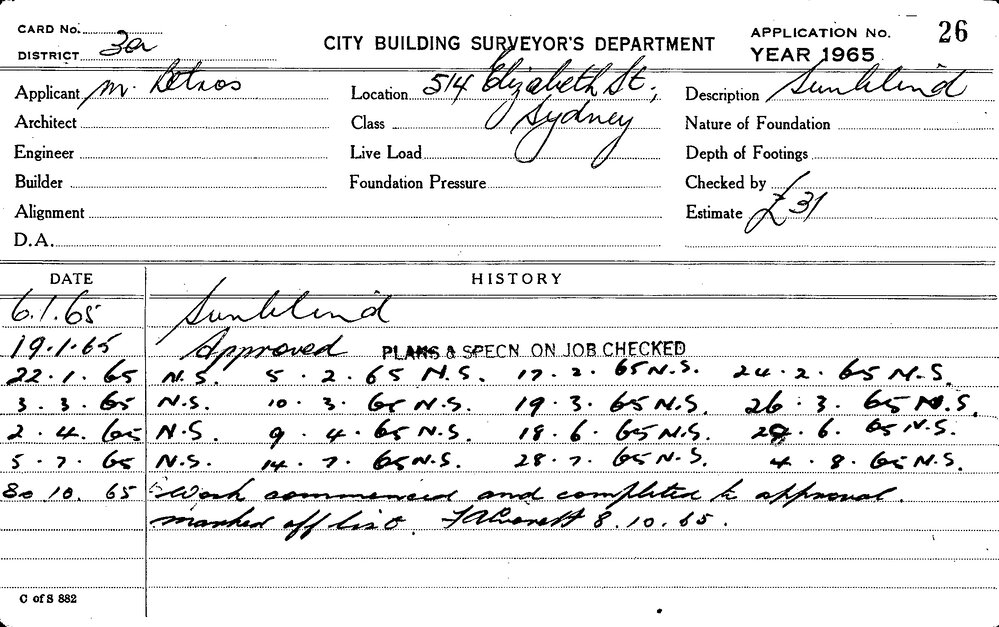 CARD No.
APPLICATION No. 26
DISTRICT 3a CITY BUILDING SURVEYOR'S DEPARTMENT YEAR 1965
Applicant M. Petros Location 514 Elizabeth St., Description Sunblind
Architect Class Sydney Nature of Foundation
Engineer Live Load Depth of Footings
Builder Foundation Pressure Checked by
Alignment Estimate £31
D.A.
DATE HISTORY
6.1.65 Sunblind
19.1.65 Approved PLANS & SPECN ON JOB CHECKED
22.1.65 N.S. 5.2.65 N.S. 17.2.65 N.S. 24.2.65 N.S.
3.3.65 N.S. 10.3.65 N.S. 19.3.65 N.S. 26.3.65 N.S.
2.4.65 N.S. 9.4.65 N.S. 18.6.65 N.S. 29.6.65 N.S.
5.7.65 N.S. 14.7.65 N.S. 28.7.65 N.S. 4.8.65 N.S.
8.10.65 Work commenced and completed to approval.
marked off list. 8.10.65.
C of S 882